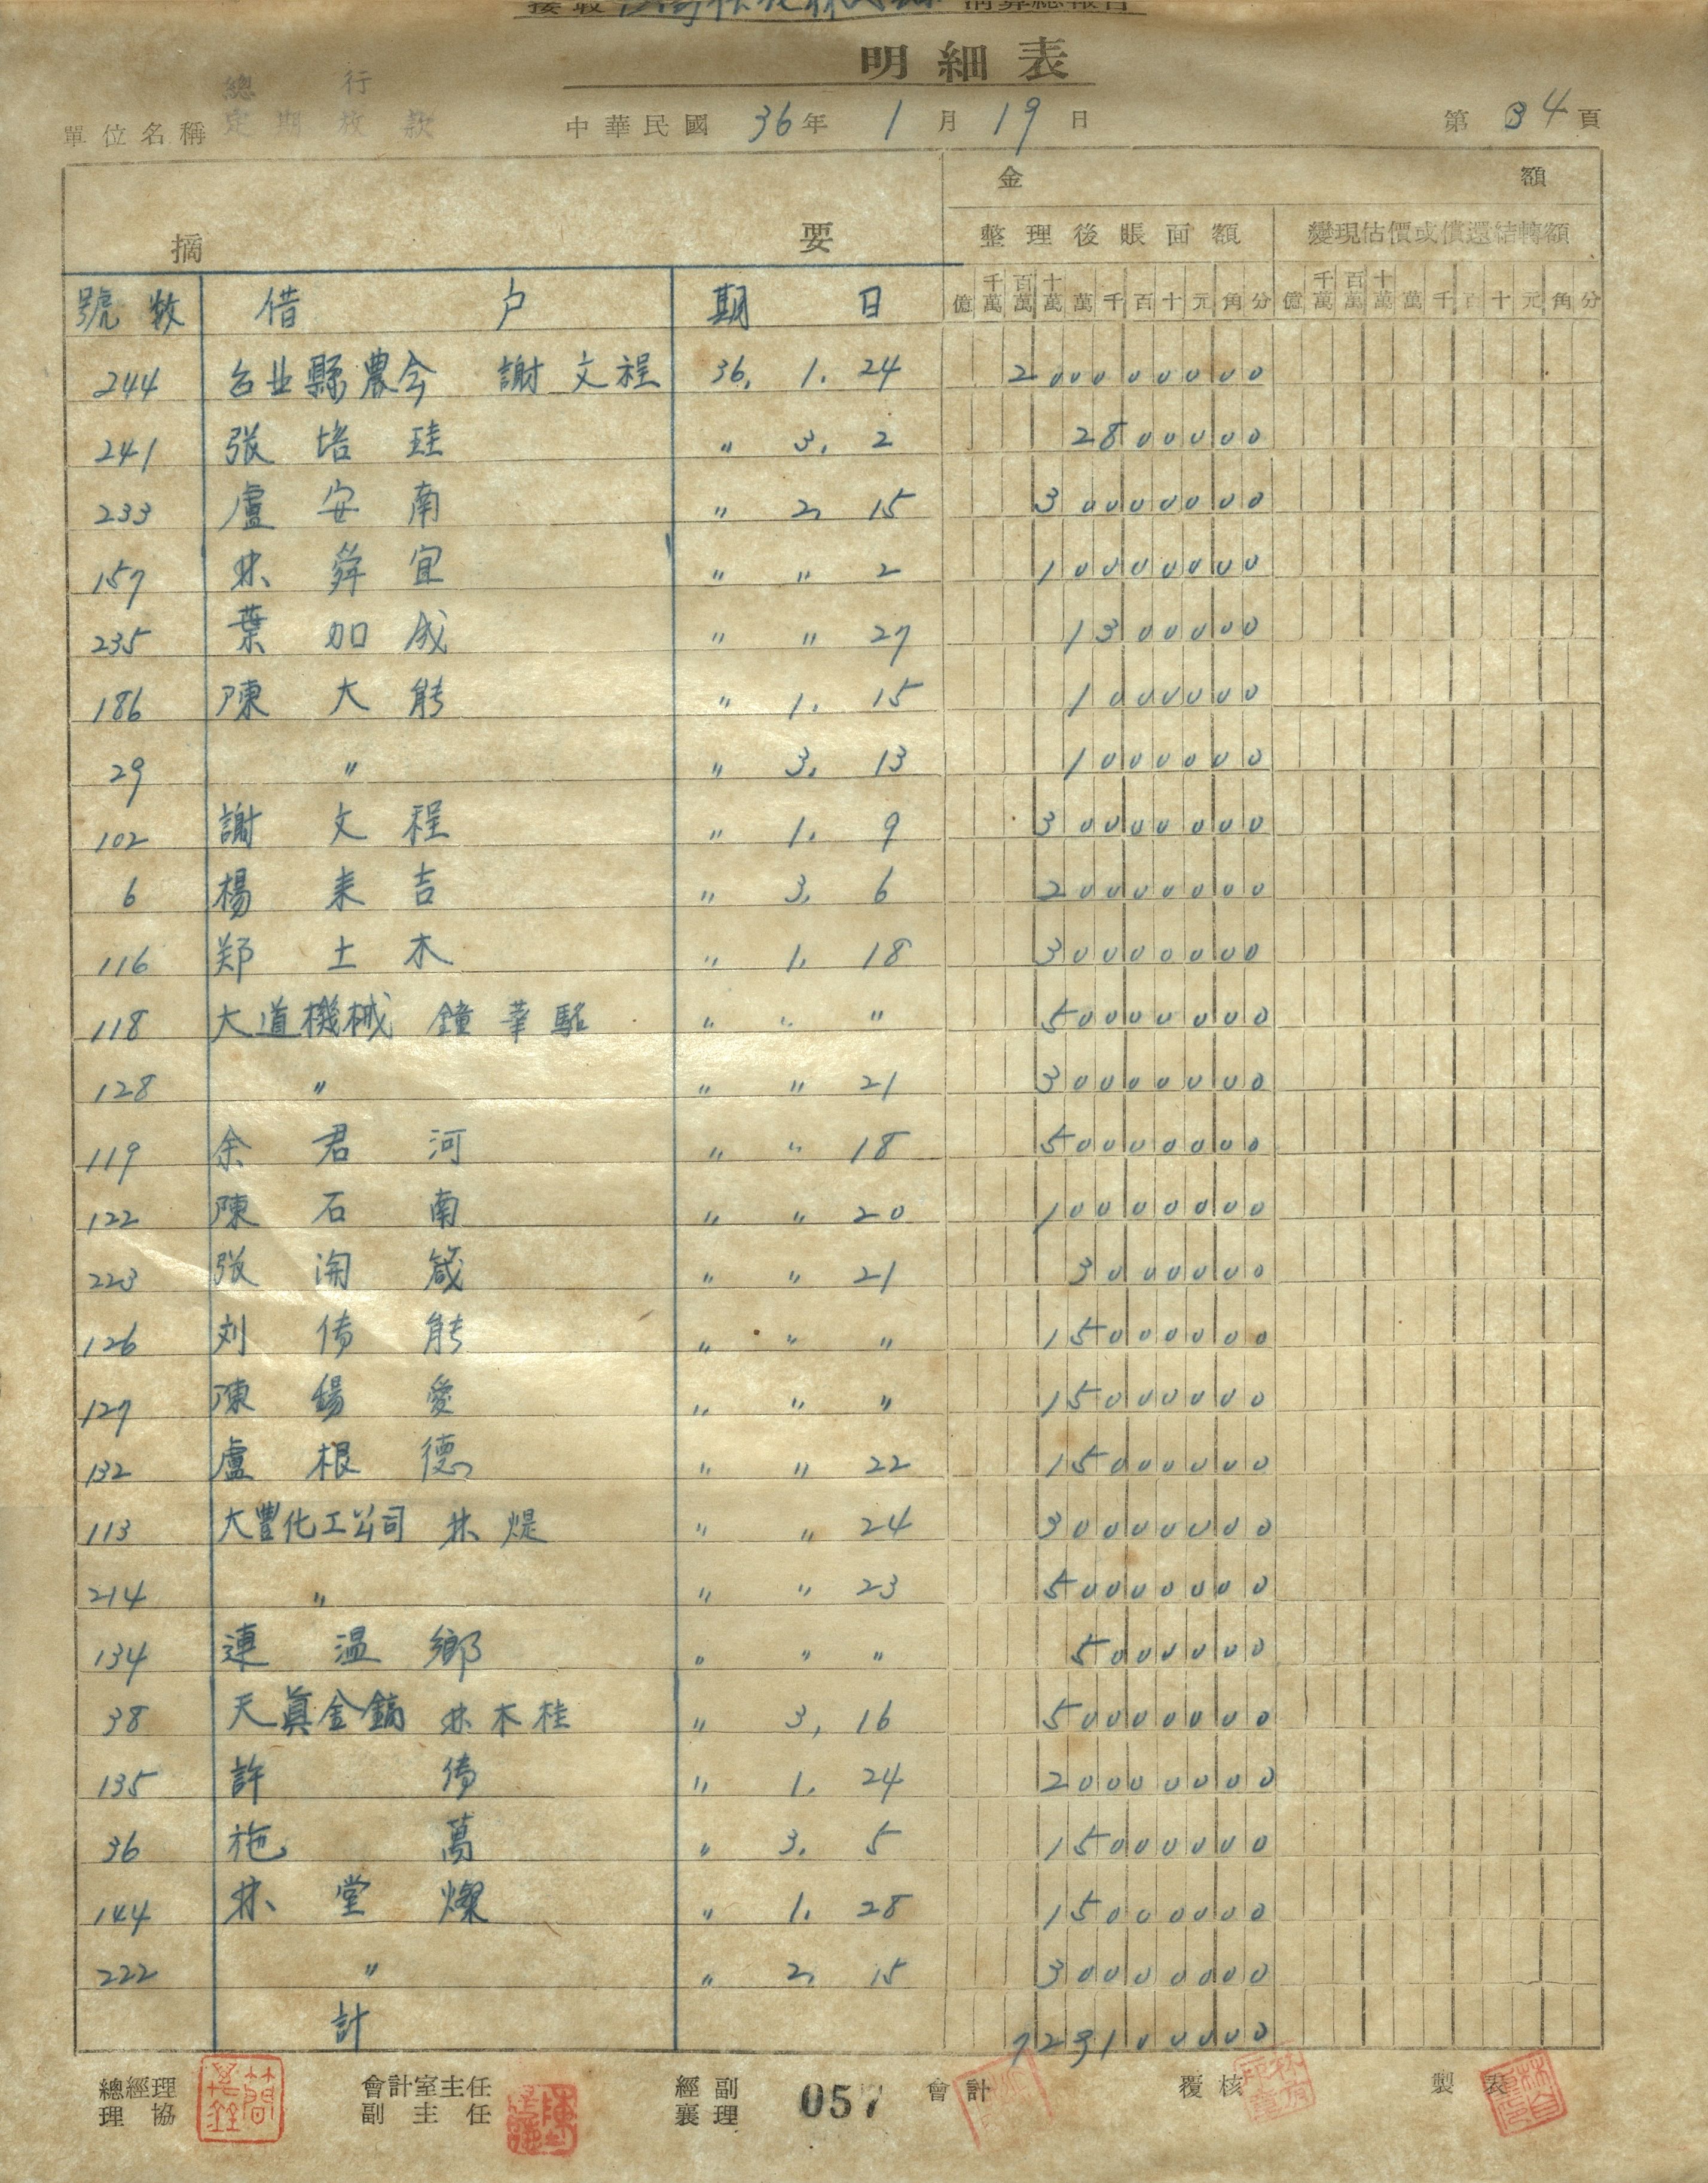 接收 清算總報告
明細表
總行
單位名稱 定期放款 中華民國 36年 1月 19日 第 34 頁
金額
摘要 整理後賬面額 變現估價或償還結轉額
億 千萬 百萬 十萬 萬 千 百 十 元 角 分 億 千萬 百萬 十萬 萬 千 百 十 元 角 分
號數 借戶 期日
244 台北縣農会 謝文程 36. 1. 24 200000000
241 張培珪 " 3. 2 2800000
233 盧安南 " 2. 15 30000000
157 林舜宜 " " 2 10000000
235 葉加成 " " 27 1300000
186 陳大能 " 1. 15 1000000
29 " " 3. 13 1000000
102 謝文程 " 1. 9 30000000
6 楊耒吉 " 3. 6 20000000
116 郑土木 " 1. 18 30000000
118 大道機械 鐘華駋 " " " 50000000
128 " " " 21 30000000
119 余君河 " " 18 50000000
122 陳石南 " " 20 10000000
223 張 箴 " " 21 3000000
126 刘傳能 " " " 15000000
127 陳錫愛 " " " 15000000
132 盧根德 " " 22 15000000
113 大豐化工公司 林煶 " " 24 30000000
214 " " " 23 50000000
134 連温鄉 " " " 5000000
38 天真金鎬 林木桂 " 3. 16 50000000
135 許傳 " 1. 24 20000000
36 施萬 " 3. 5 15000000
144 林堂燦 " 1. 28 15000000
222 " " 2. 15 30000000
計 729100000
總經理 會計室主任 經副 057 會計 覆核 製表
理協 副主任 襄理